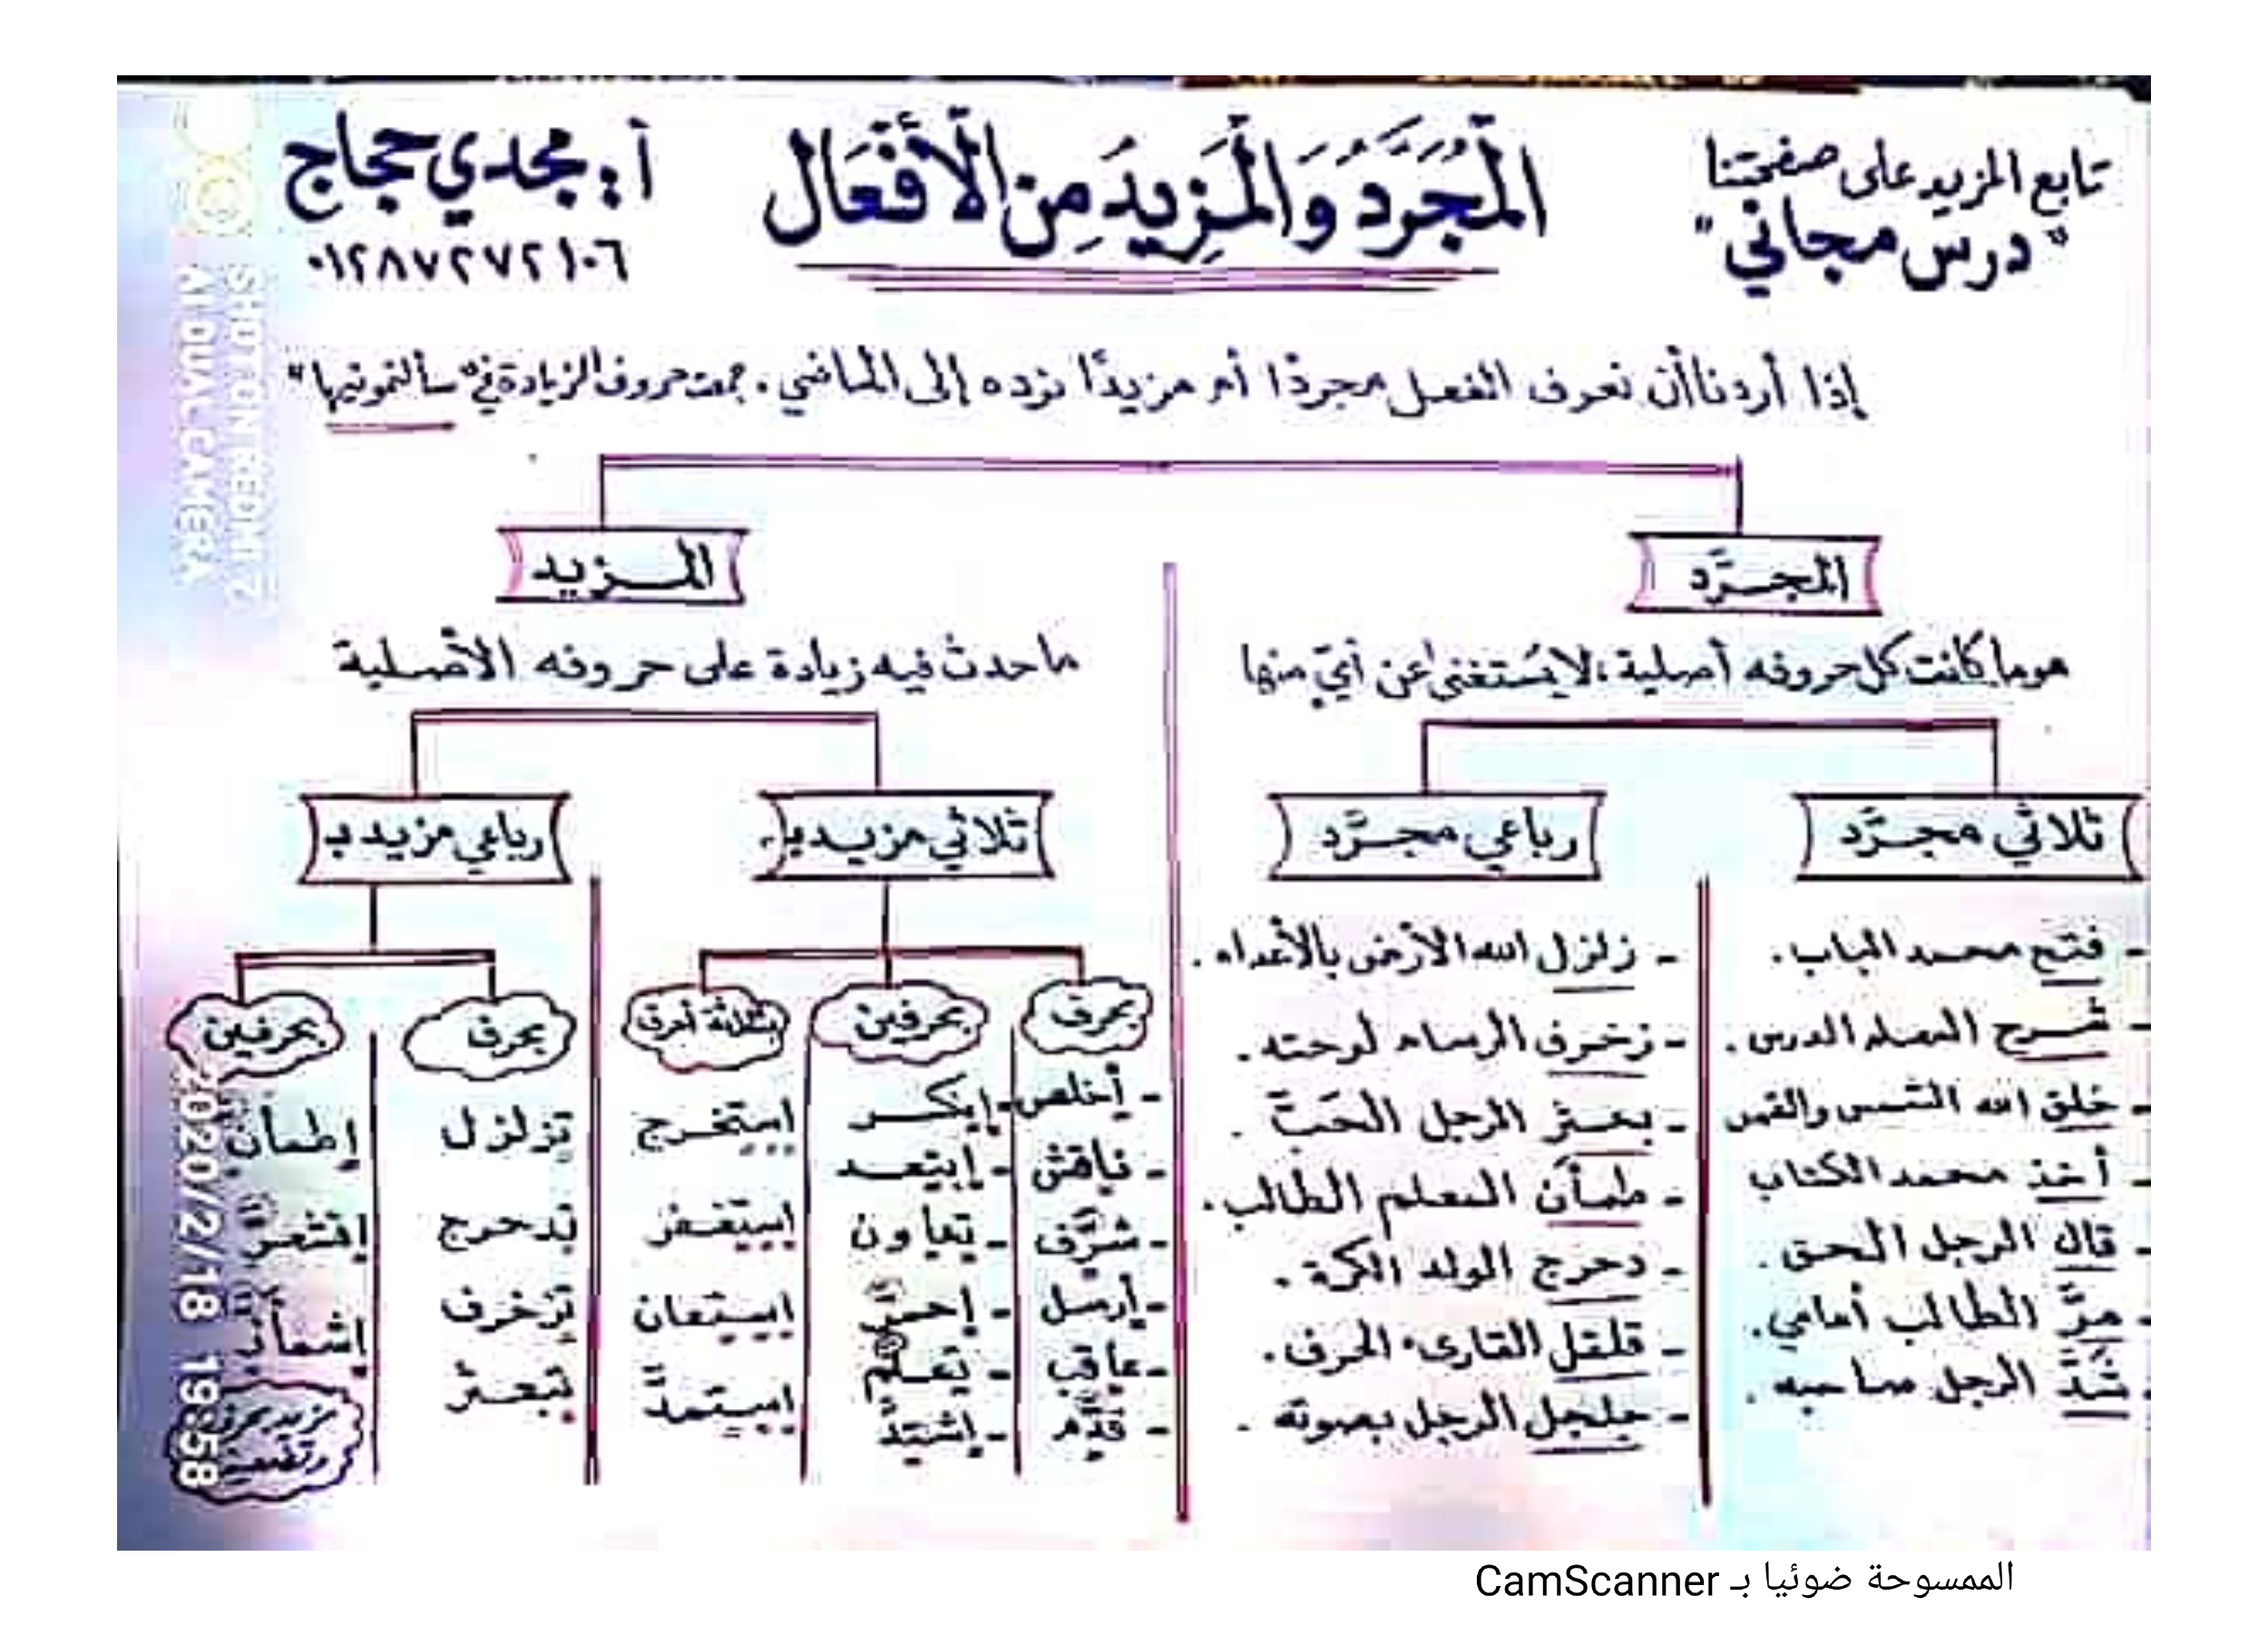 تابع المزيد على صفحتنا
"درس مجاني"
المُجَرَّدُ وَالْمَزِيدُ مِنَ الْأَفْعَال
أ: مجدي حجاج
٠١٢٨٧٢٧٢١٠٦
إذا أردنا أن نعرف الفعل مجردًا أم مزيدًا نرده إلى الماضي. جمعت حروف الزيادة في "سألتمونيها"
المجرَّد
هو ما كانت كل حروفه أصلية، لا يُستغنى عن أيّ منها
ثلاثي مجرَّد
- فتح محمد الباب.
- شرح المعلم الدرس.
- خلق الله الشمس والقمر
- أخذ محمد الكتاب
- قال الرجل الحق.
- مرَّ الطالب أمامي.
- شدَّ الرجل صاحبه.
رباعي مجرَّد
- زلزل الله الأرض بالأعداء.
- زخرف الرسام لوحته.
- بعثر الرجل الحَبَّ.
- طمأن المعلم الطالب.
- دحرج الولد الكرة.
- قلقل القارىء الحرف.
- جلجل الرجل بصوته.
المزيد
ما حدث فيه زيادة على حروفه الأصلية
ثلاثي مزيد بـ
بحرف
- أخلص
- ناقش
- شرَّف
- أرسل
- عاقب
- قدَّم
بحرفين
- إبتكر
- إبتعد
- تعاون
- إحمرَّ
- تعلَّم
- إشتدَّ
بثلاثة أحرف
إستخرج
إستغفر
إستعان
إستمدَّ
رباعي مزيد بـ
بحرف
تزلزل
تدحرج
تزخرف
تبعثر
بحرفين
إطمأنَّ
إقشعرَّ
إشمأزَّ
مزيد بحرف
وتضعيف
SHOT ON REDMI 7
AI DUAL CAMERA
2020/2/18 19:58
الممسوحة ضوئيا بـ CamScanner